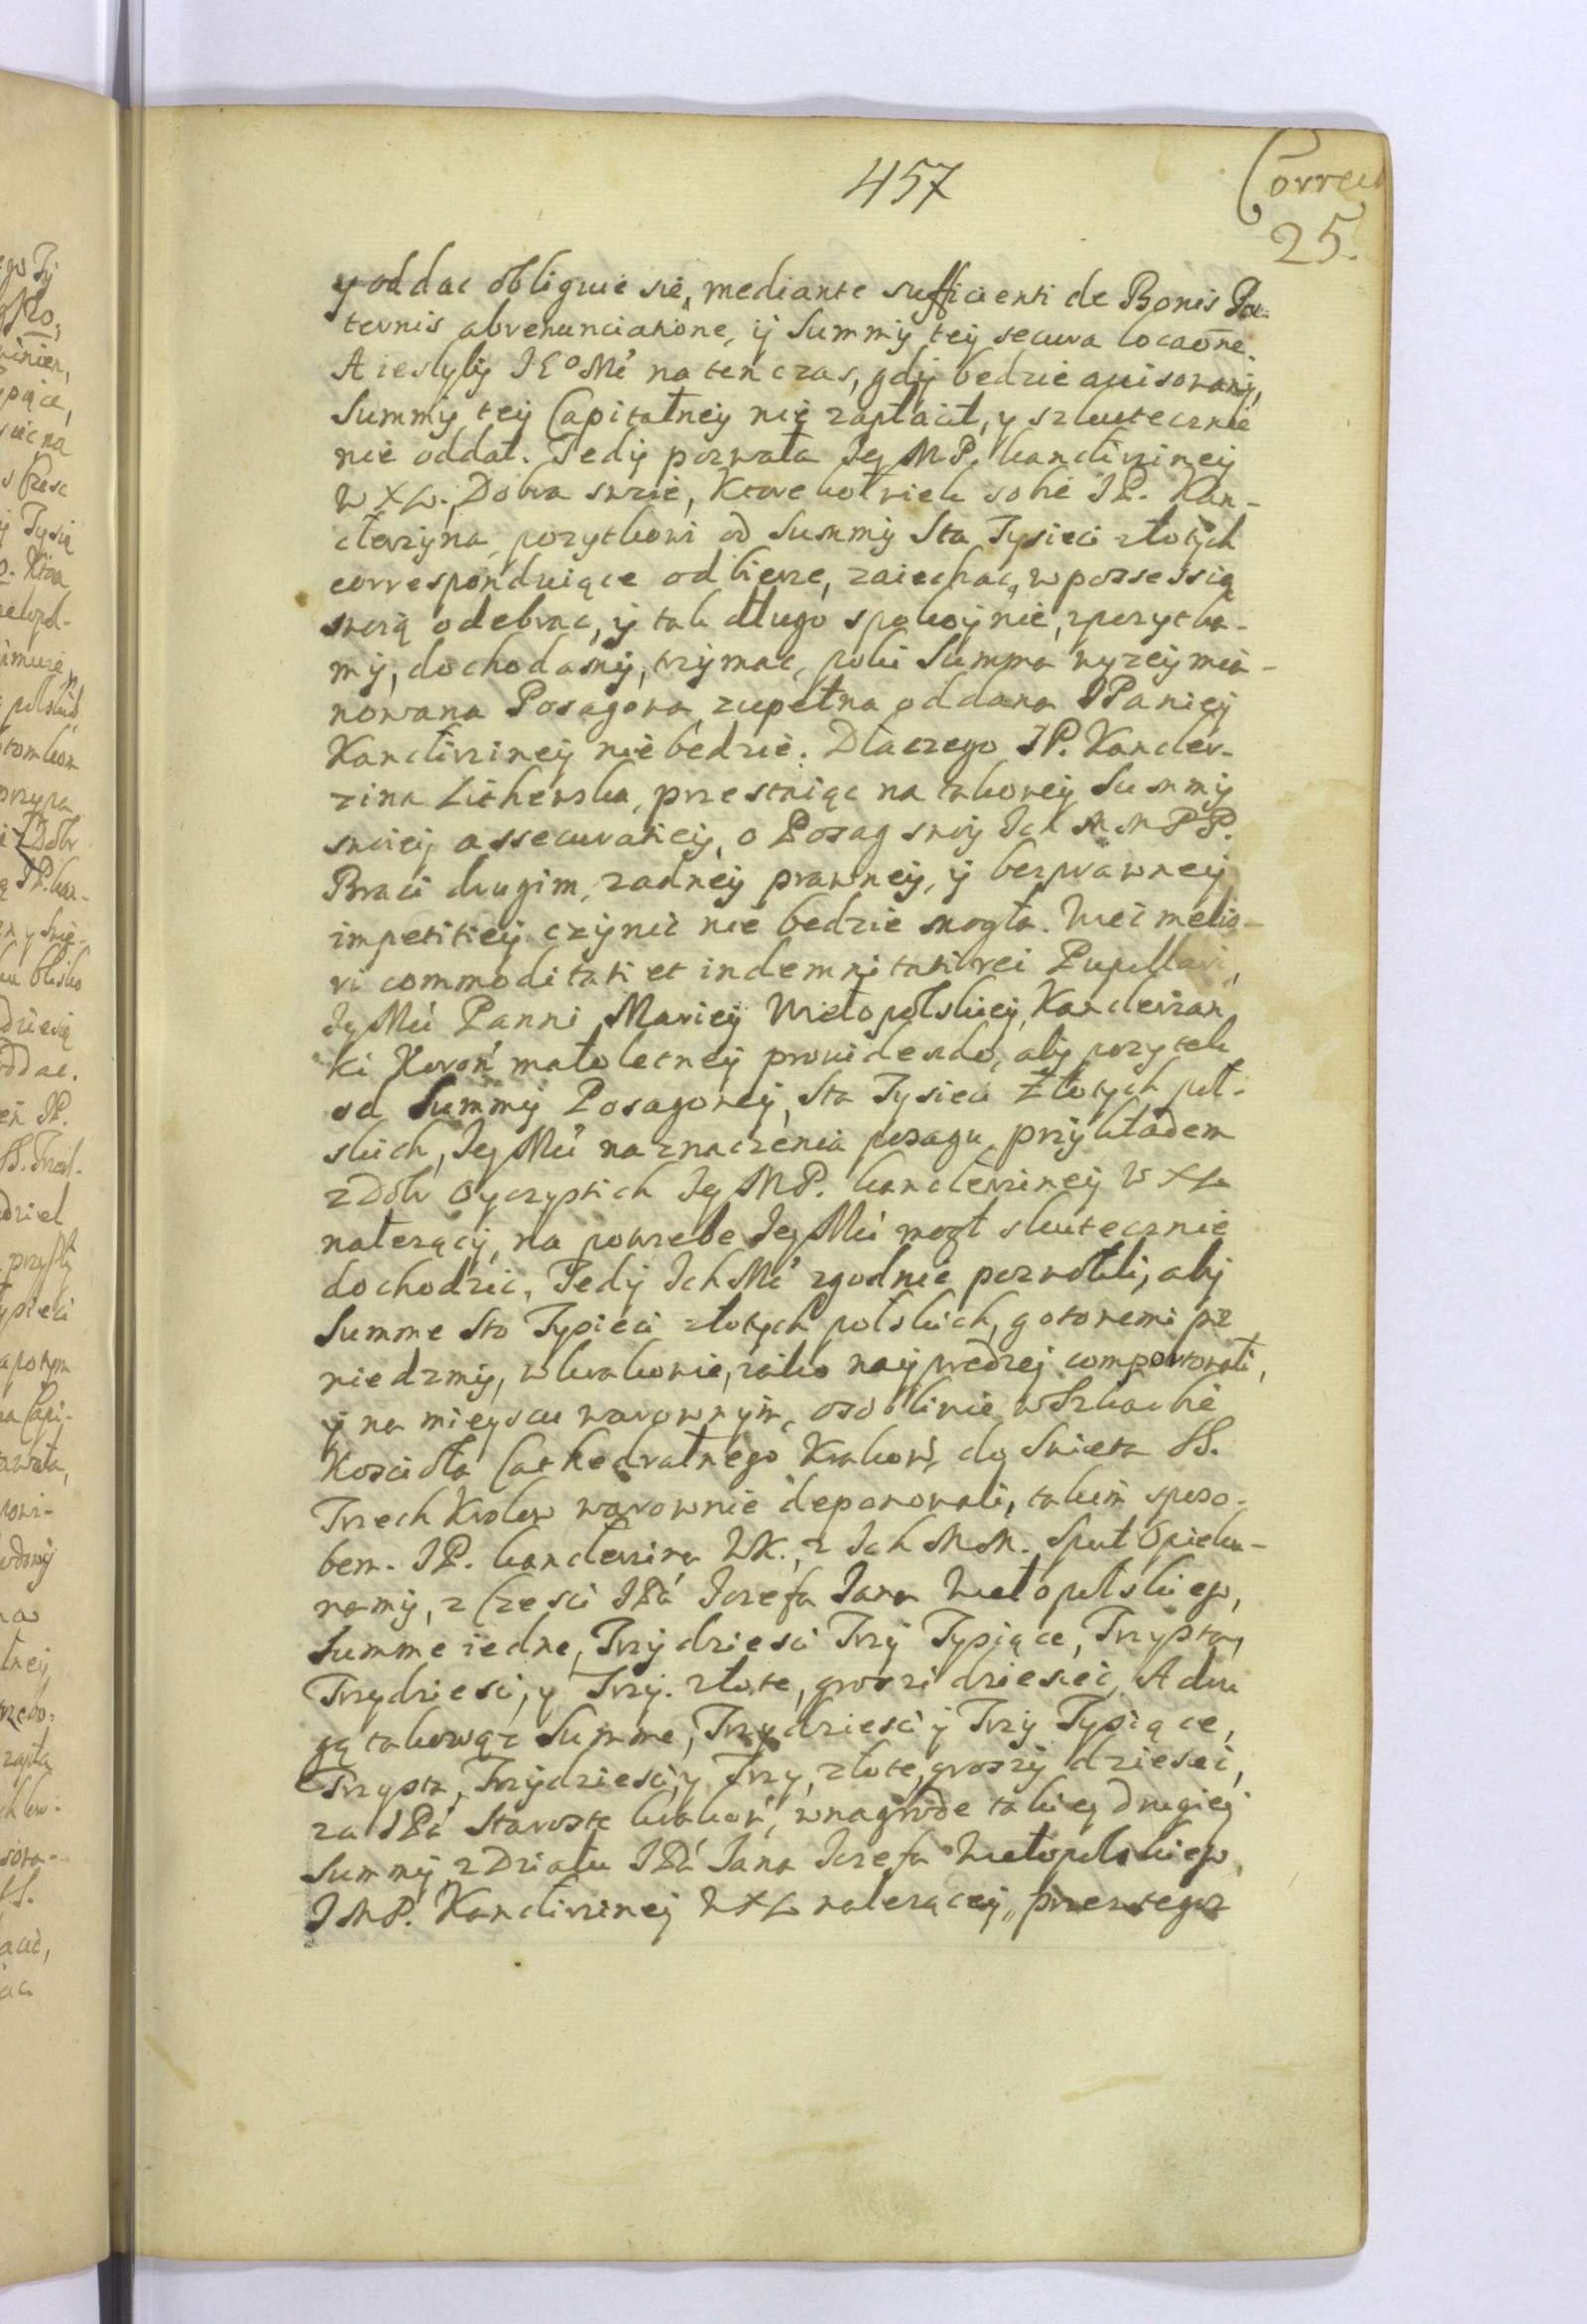 457
Correct
25.
y oddac obliguie sie, mediante sufficienti de Bonis Pa-
ternis abrenunciatione, ij Summij teij secura locaõne.
A ieslybij JEoMć na ten czas, gdij bedzie auisowanij,
Summij teij Capitalneij nie zapłacił, y szkutecznie
nie oddał. Tedij pozwala Jeg MP. kanclirzineij
WXL. Dobra swoie, Ktorekolwiek sobie JP. Kan-
clerzyna, pozytkowi od Summij Sta Tysieci złotych
correspondniące odbierze, zaiechac, w possessią
swoią odebrac, ij tak długo spokoijnie, z pozytka-
mij, dochodamij, trzijmac, poki Summa wyzeij mia-
nowana Posagowa zupełna oddana JPanieij
Kanclirzineij nie bedzie. Dlaczego JP. Kancler-
zina Lithewska, przestaiąc na takoweij Summij
swoieij assecuratieij, o Posag swoij Ich M MPP.
Braci drugim, zadneij prawneij, ij bezprawneij
impetitieij czijnic nie bedzie mogła. Wiec melio-
ri commoditati et indemnitati rei Pupillari,
JegMći Panni Marieij Wielopolskieij, Kanclerzan
ki Koroń małoletneij prouidendo, abij pozytek
od Summij Posagoweij, Sta Tysieci Złotych pol-
skich, JegMći naznaczenia posagu przijkładem
z Dobr Oyczystich Jeg MP. kanclerzineij WXL
nalezącij, na potrzebe JegMći mogł skutecznie
dochodzic, Tedij IchMć zgodnie pozwolili, abij
Summe Sto Tysieci złotych polskich, gotowemi pie
niedzmij, w krakowie, iako naij predzej comportowali,
ij na mieyscu warownijm, osobliwie w Szkarbie
Koscioła Cathedralnego Krakow: do Swieta SS.
Trzech Krolow warownie deponowali, takim sposo-
bem. JP. kanclerzina WK., z Ich M M. Społ Opieku-
namij, z Czesci JPa Jozefa Jana Wielopolskiego,
Summe iedne, Trzijdziesci Trzij Tysiące, Trzysta,
Trzydziesci, y Trzij. złote, groszi dziesieć, A dru
gą takowąz Summe, Trzydziesci ij Trzij Tysiące,
Trzysta, Trzijdziesci, y Trzy, złote, groszij dziesieci,
za JPa Staroste krakow, w nagrode takieij drugieij
Summij z Działu JPa Jana Jozefa Wielopolskiego,
JMP. Kanclirzineij WXL nalezącaij, przez tegoz